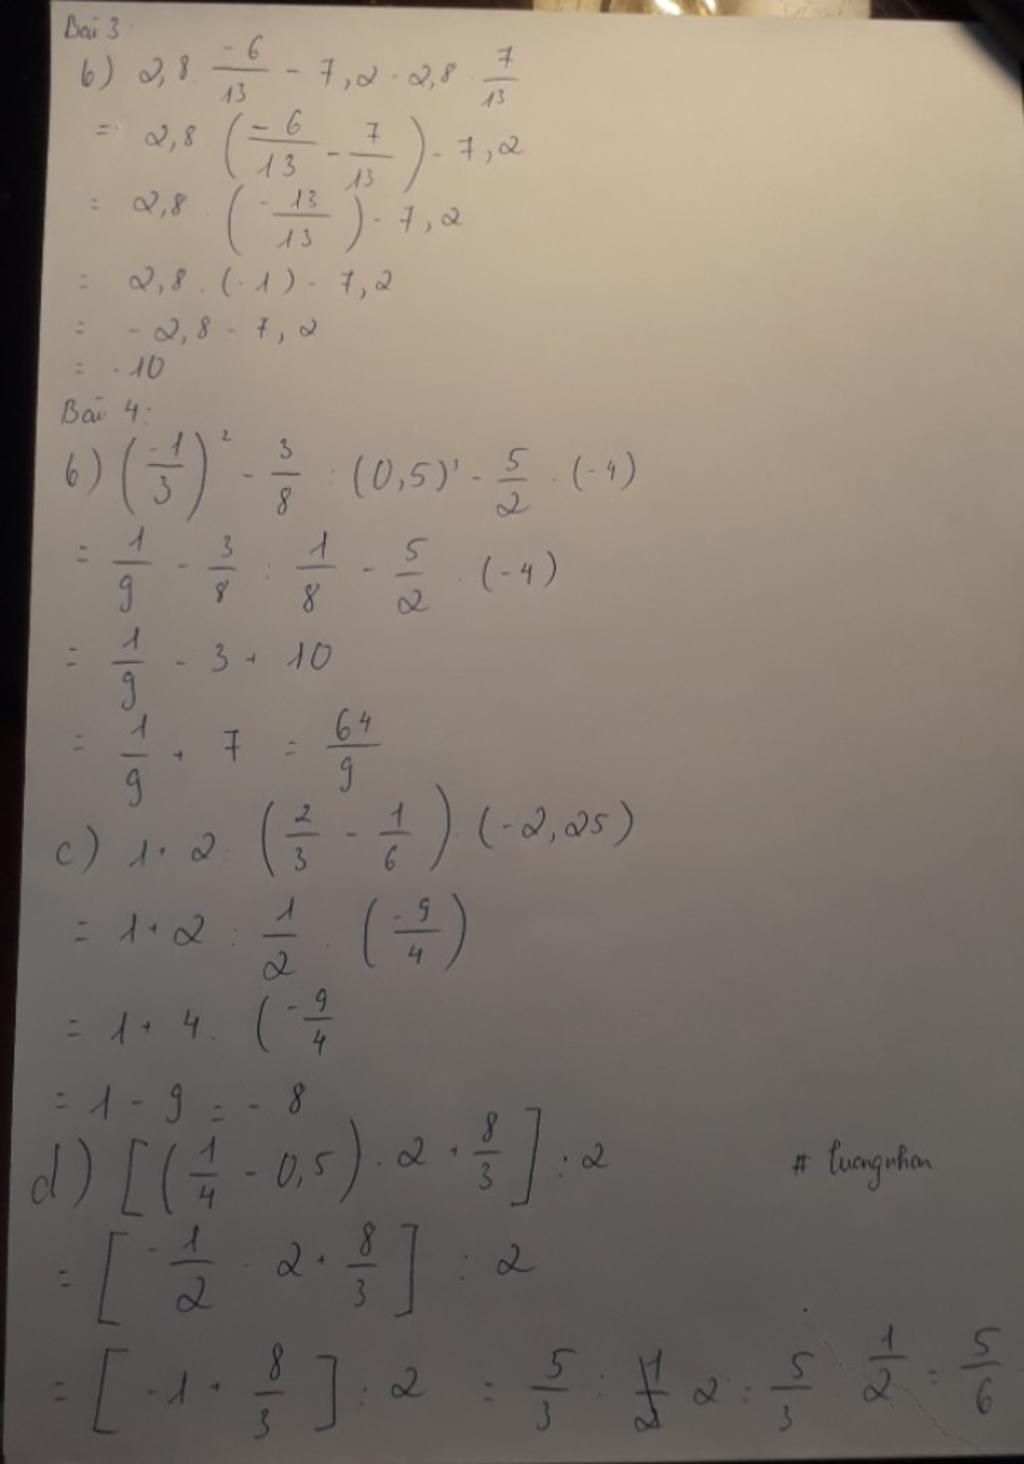 Bài 3:
b) 2,8 . -6/13 - 7,2 - 2,8 . 7/13
= 2,8 (-6/13 - 7/13) - 7,2
= 2,8 . (-13/13) - 7,2
= 2,8 . (-1) - 7,2
= -2,8 - 7,2
= -10
Bài 4:
b) (-1/3)² - 3/8 : (0,5)³ - 5/2 . (-4)
= 1/9 - 3/8 : 1/8 - 5/2 . (-4)
= 1/9 - 3 + 10
= 1/9 + 7 = 64/9
c) 1 + 2 : (2/3 - 1/6) . (-2,25)
= 1 + 2 : 1/2 . (-9/4)
= 1 + 4 . (-9/4
= 1 - 9 = -8
d) [(1/4 - 0,5) . 2 + 8/3] : 2
# tuongnhan
= [-1/2 . 2 + 8/3] : 2
= [-1 + 8/3] : 2 = 5/3 : 2 = 5/3 . 1/2 = 5/6